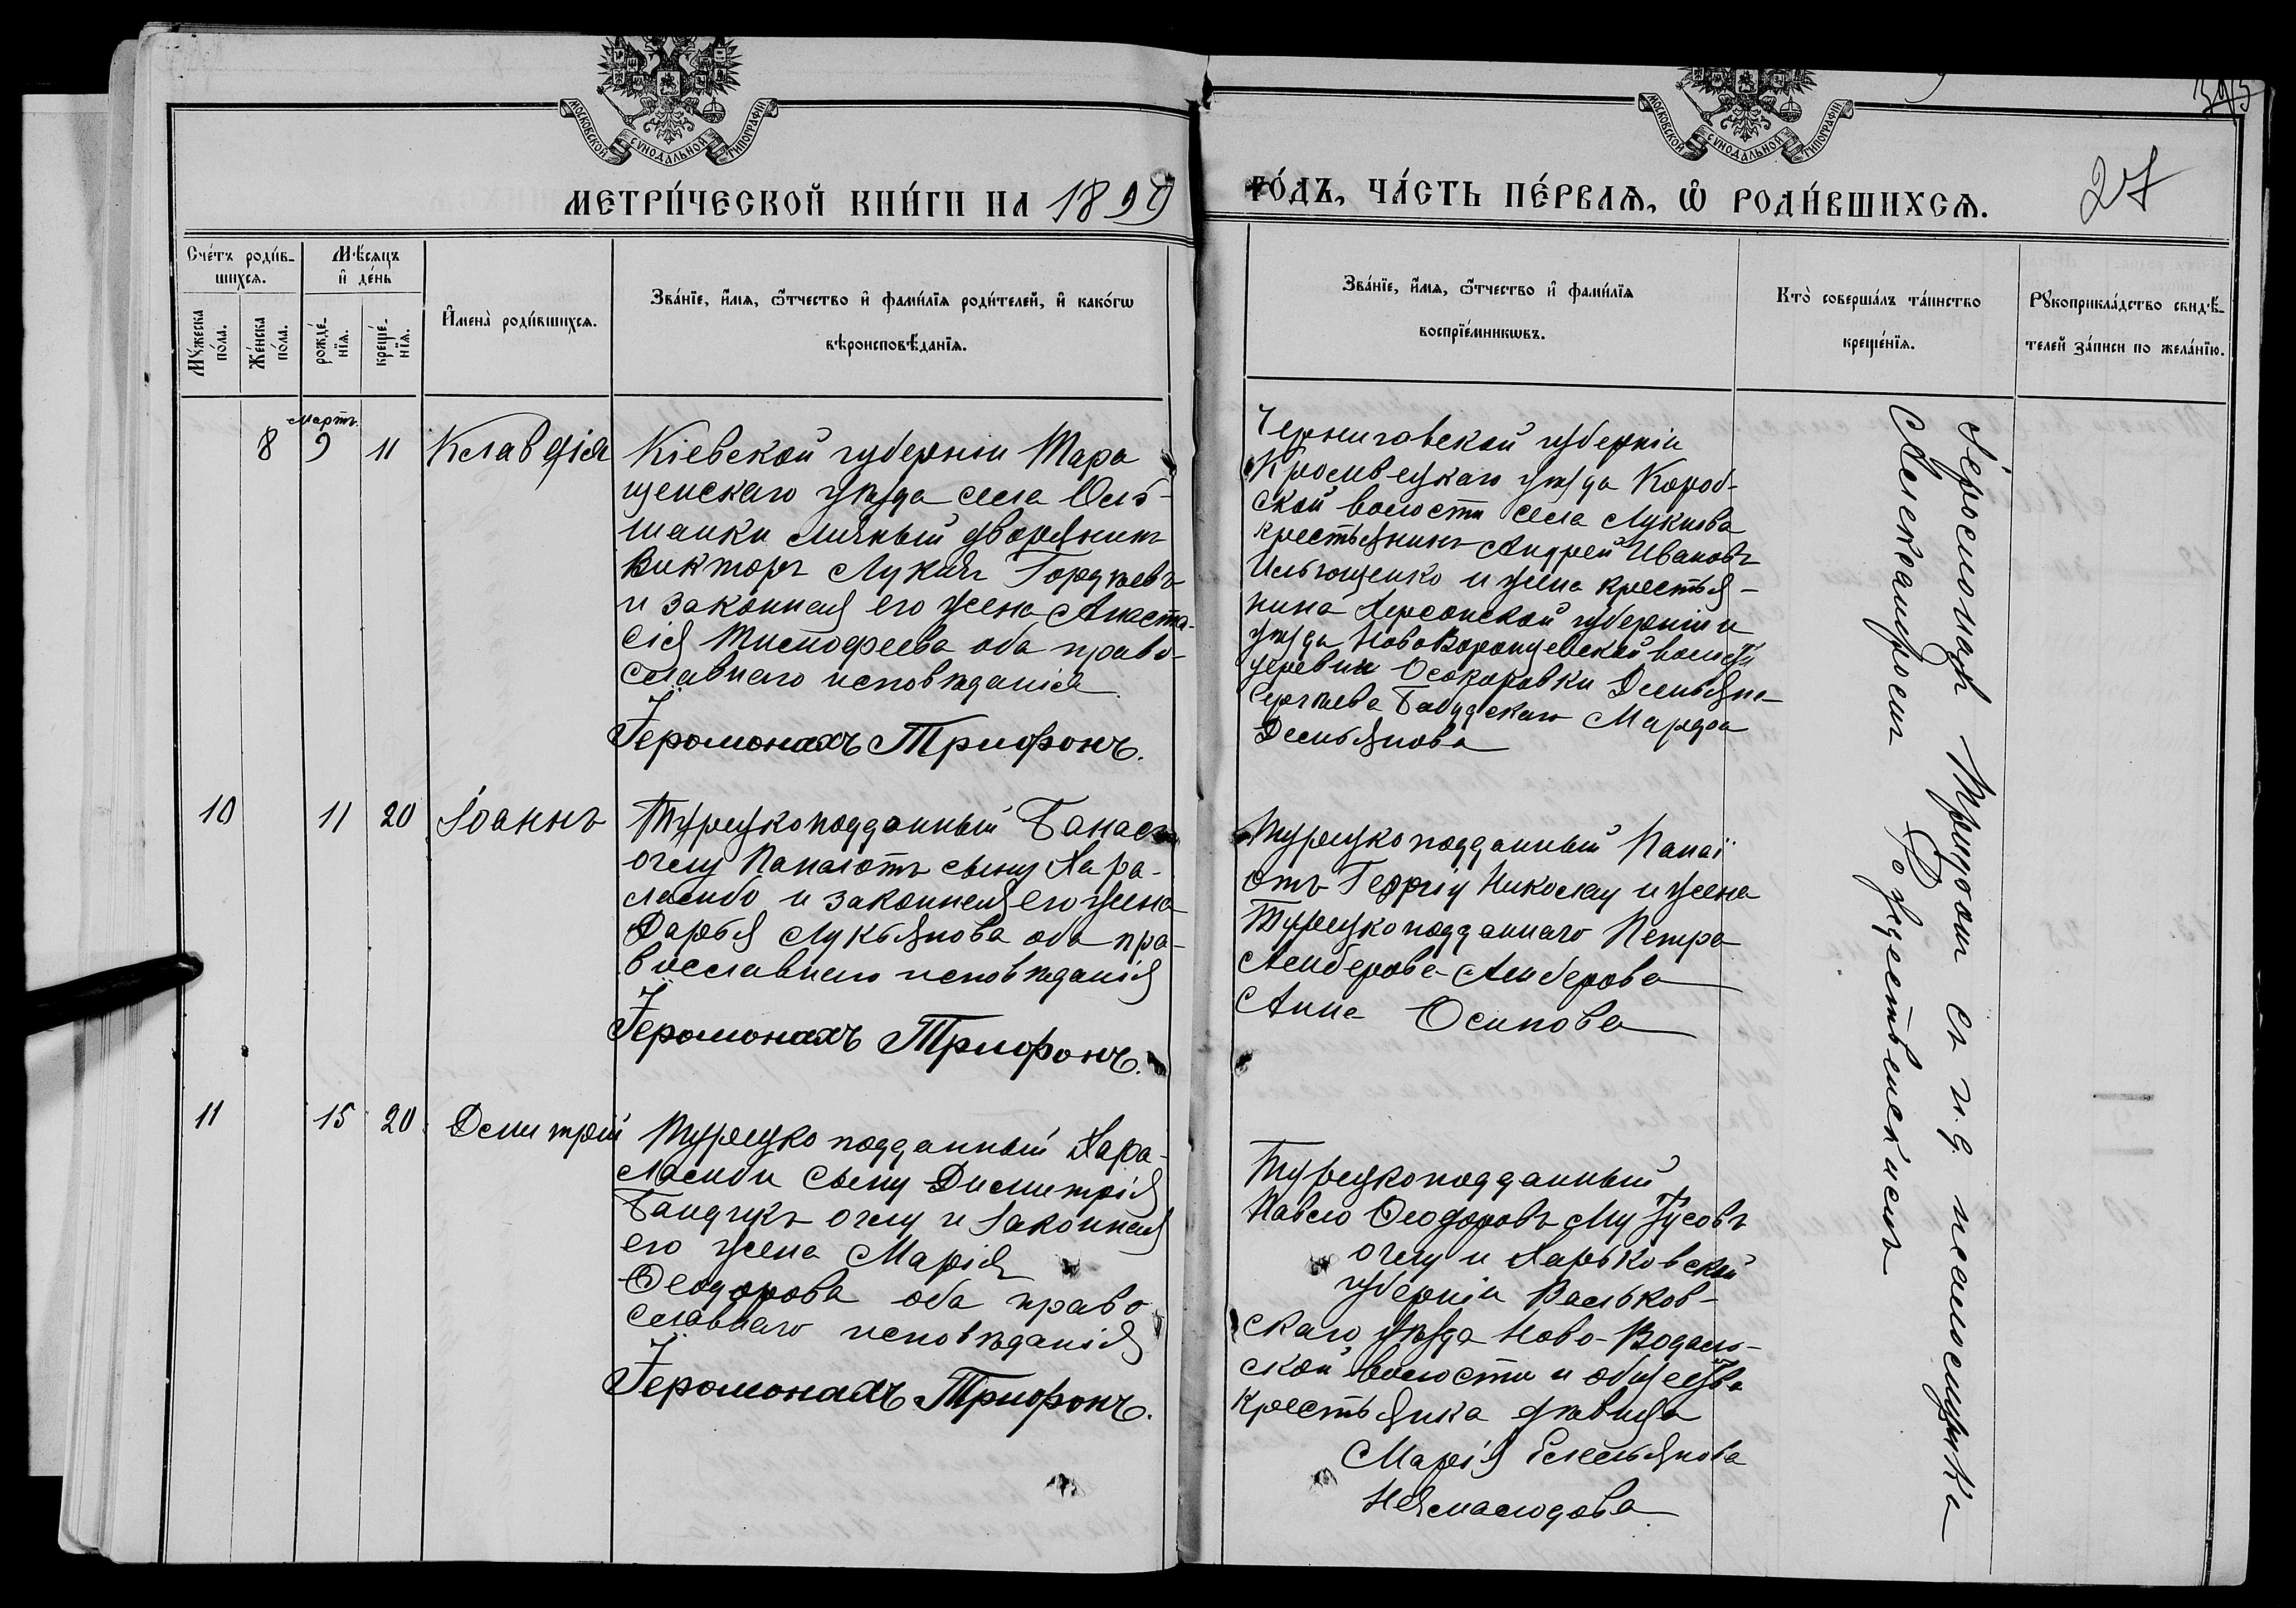 МОСКОВСКОЙ СУНОДАЛЬНОЙ ТИПОГРАФІИ
МОСКОВСКОЙ СУНОДАЛЬНОЙ ТИПОГРАФІИ
395
МЕТРИ́ЧЕСКОЙ КНИ́ГИ НА 1899
ГО́ДЪ, ЧА́СТЬ ПЕ́РВАЯ, Ѿ РОДИ́ВШИХСЯ.
27
Сче́тъ роди́в-
шихся.
Мꙋ́жеска по́ла.
Же́нска по́ла.
Мѣ́сяцъ и҆ де́нь
рожде́-
нїя.
креще́-
нїя.
И҆мена̀ роди́вшихся.
Зва́нїе, и҆́мя, ѻ҆́тчество и҆ фами́лїя роди́телей, и҆ како́гѡ
вѣроисповѣ́данїя.
Зва́нїе, и҆́мя, ѻ҆́тчество и҆ фами́лїя
воспрїе́мникѡвъ.
Кто̀ соверша́лъ та́инство
креще́нїя.
Рꙋкоприкла́дство свидѣ́-
телей за́писи по жела́нїю.
Мартъ
8 9 11 Клавдія
Кіевской губерніи Тара
щенскаго уѣзда села Оль-
шанки личный дворянинъ
Викторъ Лукичъ Гордѣевъ
и законная его жена Анаста-
сія Тимофеева оба право-
славнаго исповѣданія
Іеромонахъ Трифонъ.
Черниговской губерніи
Кролевецкаго уѣзда Короб-
ской волости села Лукнова
крестьянинъ Андрей Ивановъ
Ильющенко и жена крестья-
нина Херсонской губерніи и
уѣзда Нововоронцовской волости
деревни Осокоровки Демьяна
Сергѣева Марфа
Демьянова
10 11 20 Іоаннъ
Турецкоподданный Банасъ
оглу Панаіотъ сыну Хара-
ламбо и законная его жена
Дарья Лукьянова оба пра-
вославнаго исповѣданія
Іеромонахъ Трифонъ.
Турецкоподданный Панаі
отъ Георгіу Николау и жена
Турецкоподданнаго Петра
Анна Осипова
11 15 20 Димитрій
Турецкоподданный Хара-
ламби сыну Димитрія
оглу и законная
его жена Марія
Ѳеодорова оба право
славнаго исповѣданія
Іеромонахъ Трифонъ.
Турецкоподданный
Павло Ѳеодоровъ
оглу и Харьковской
губерніи Валков-
скаго уѣзда Ново-Водола-
ской волости и общества
крестьянка дѣвица
Марія Емельянова
Іеромонахъ Трифонъ съ и. д. псаломщика
Александромъ Рождественскимъ